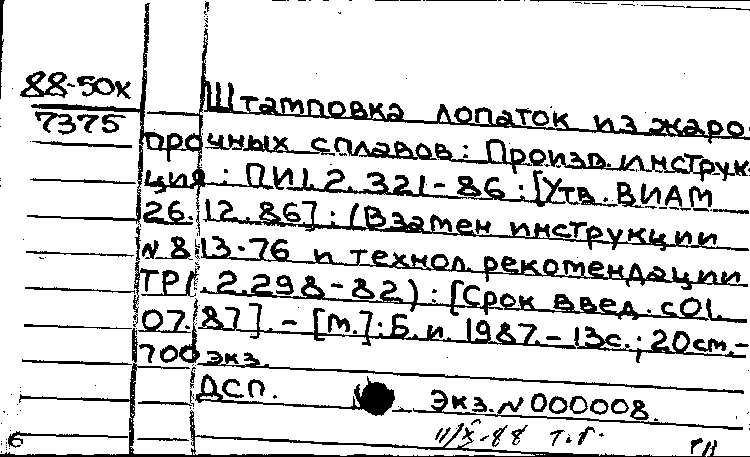 88-50к
7375
Штамповка лопаток из жаро-
прочных сплавов: Произв. инструк-
ция: ПИ1.2.321-86: [Утв. ВИАМ
26.12.86]: (Взамен инструкции
№ 813-76 и технол. рекомендации
ТР1.2.298-82): [Срок введ. с 01.
07.87]. - [М.]: Б.и. 1987. - 13с.; 20см. -
700 экз.
ДСП. Экз. № 000008.
11/X-88 т.г.
6